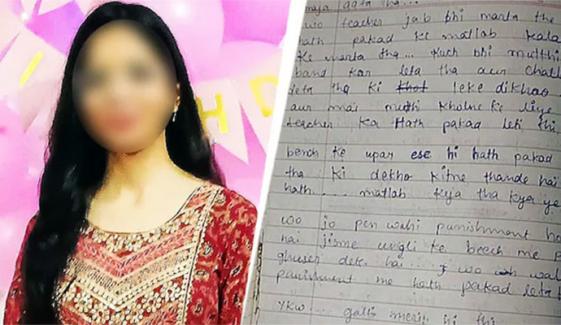 H D
maja aata tha...
wo teacher jab bhi marta the
hath pakad ke matlab kala
ke marta tha... Kuch bhi mutthi
band kar leta tha aur chall
deta tha ki khol leke dikhao
aur mai muthi kholne ke liye
teacher ka Hath pakad leti thi
bench ke upar ese hi hath pakad
tha ki dekho kitne thande hai
hath ... matlab kya tha kya ye
wo jo pen wahi punishment ho
hai jisme ungli ke beech me p
ghusa dete hai...
punishment me hath pakad leta
Ykw galti meri hi thi